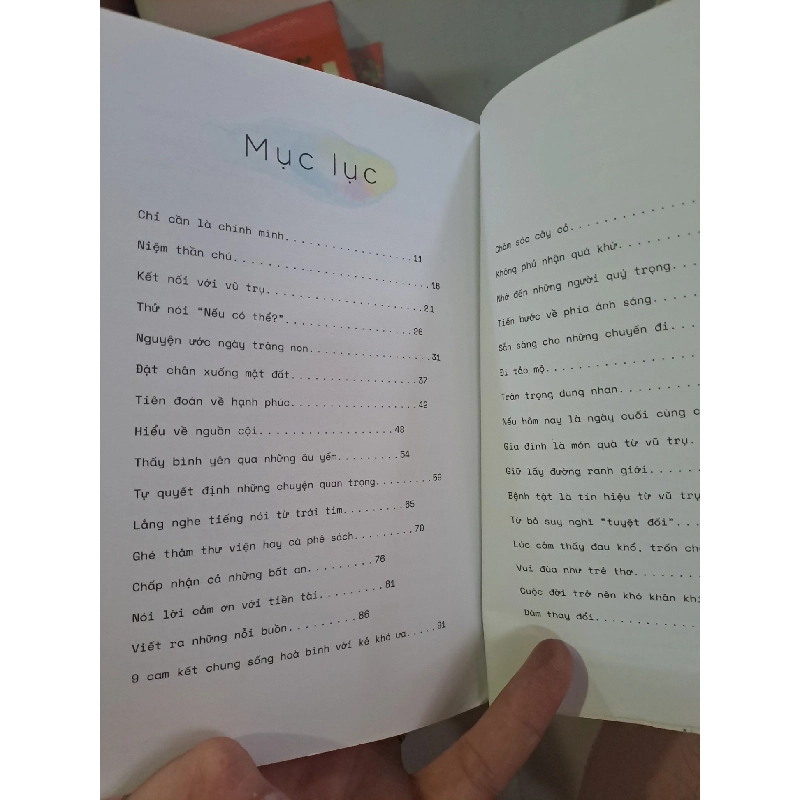 Mục lục
Chỉ cần là chính mình..................11
Niệm thần chú..........................16
Kết nối với vũ trụ.....................21
Thử nói "Nếu có thể?"..................26
Nguyện ước ngày trăng non..............31
Đặt chân xuống mặt đất.................37
Tiên đoán về hạnh phúc.................43
Hiểu về nguồn cội..................48
Thấy bình yên qua những âu yếm.........54
Tự quyết định những chuyện quan trọng........59
Lắng nghe tiếng nói từ trái tim.........65
Ghé thăm thư viện hay cà phê sách........70
Chấp nhận cả những bất an.........76
Nói lời cảm ơn với tiền tài.........81
Viết ra những nỗi buồn.........86
9 cam kết chung sống hoà bình với kẻ khó ưa.....91
Chăm sóc cây cỏ..............
Không phủ nhận quá khứ..........
Nhớ đến những người quý trọng...
Tiến bước về phía ánh sáng.....
Sẵn sàng cho những chuyến đi...
Đi tảo mộ...................
Trân trọng dung nhan.........
Nếu hôm nay là ngày cuối cùng
Gia đình là món quà từ vũ trụ.
Giữ lấy đường ranh giới......
Bệnh tật là tín hiệu từ vũ trụ
Từ bỏ suy nghĩ "tuyệt đối"...
Lúc cảm thấy đau khổ, trốn
Vui đùa như trẻ thơ.........
Cuộc đời trở nên khó khăn
Dám thay đổi.............